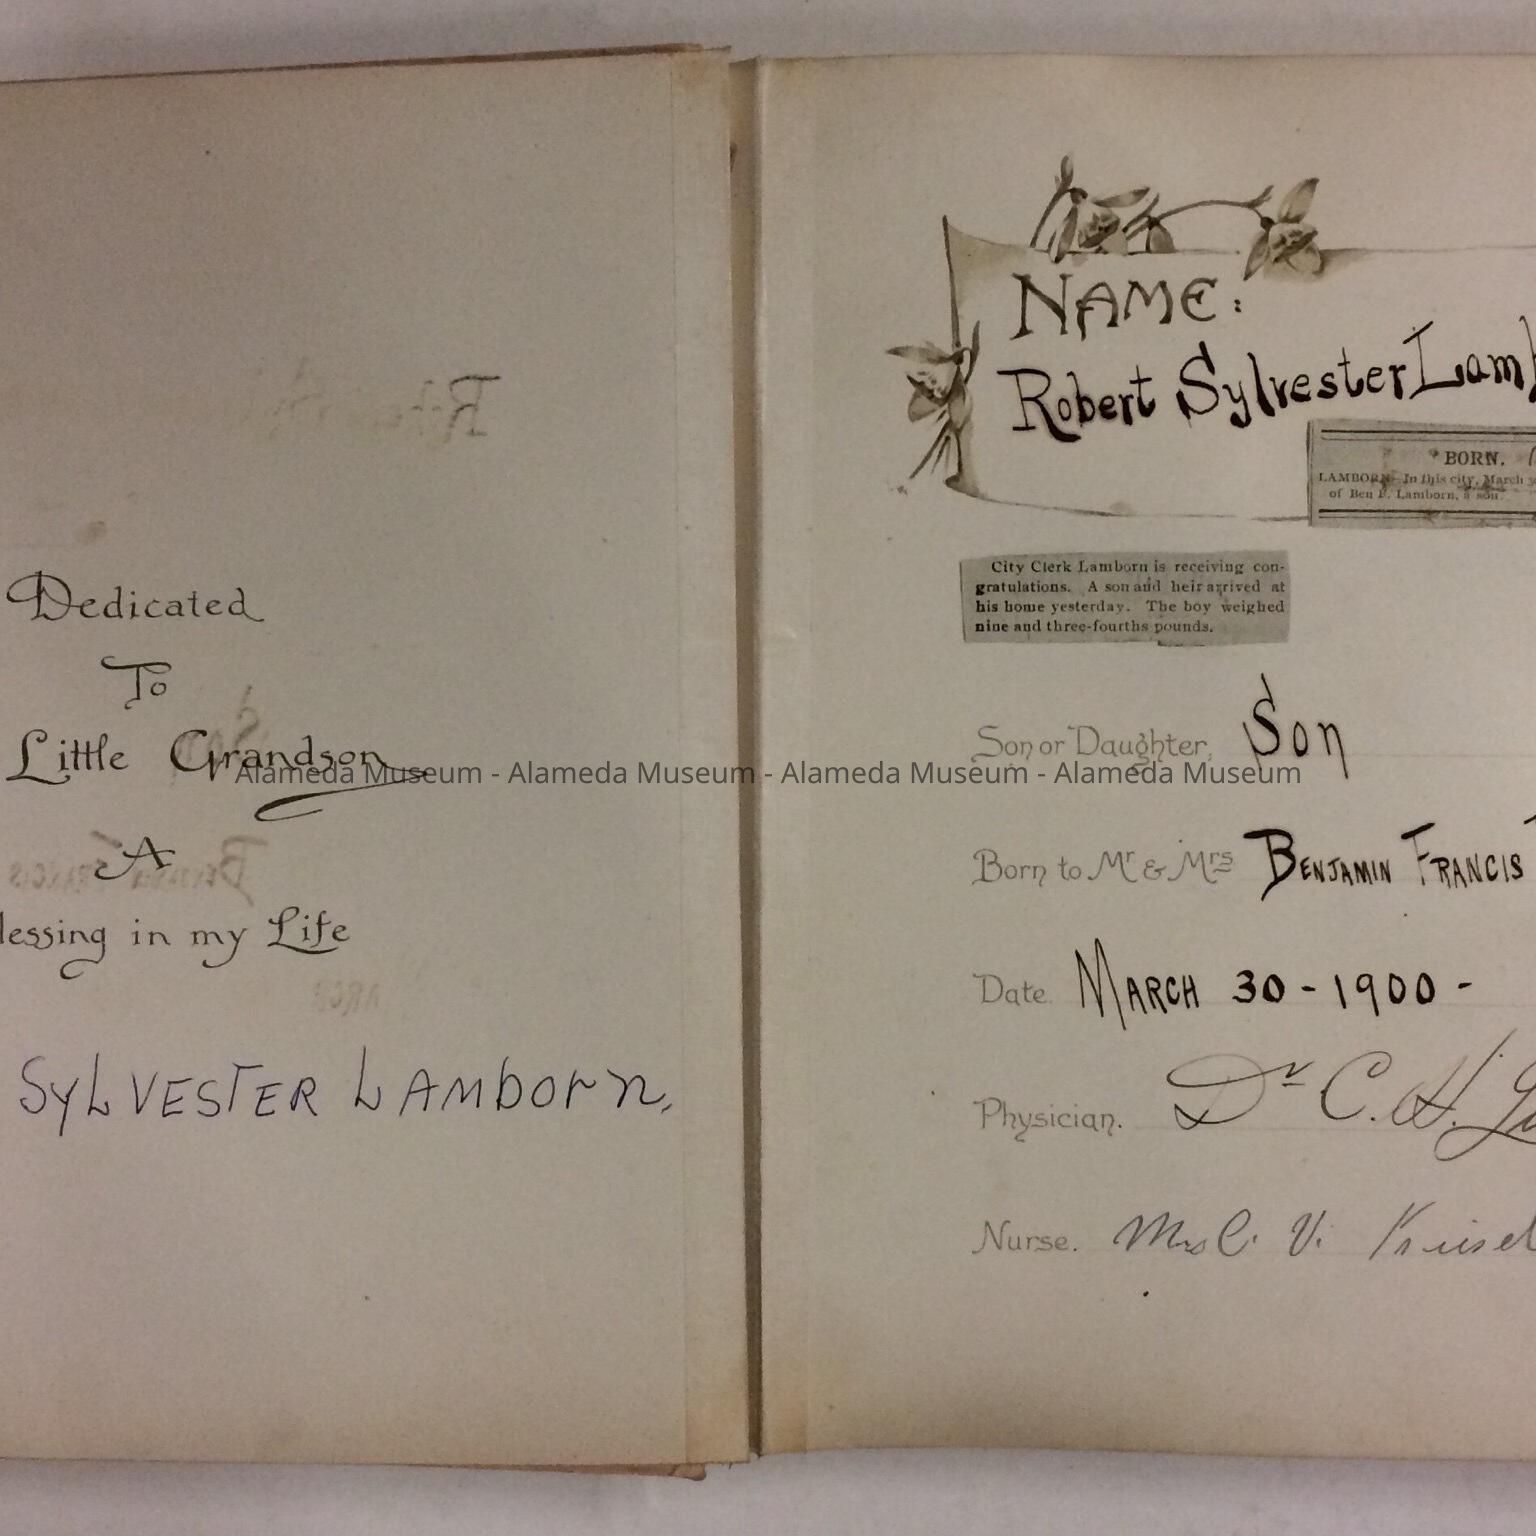 Dedicated
To
Little Grandson
A
lessing in my Life
SYLVESTER LAMBORN,
NAME:
Robert Sylvester Lamb
BORN.
LAMBORN—In this city, March 30
of Ben F. Lamborn, a son.
City Clerk Lamborn is receiving con-
gratulations. A son and heir arrived at
his home yesterday. The boy weighed
nine and three-fourths pounds.
Son or Daughter, Son
Alameda Museum - Alameda Museum - Alameda Museum - Alameda Museum
Born to Mr & Mrs BENJAMIN FRANCIS
Date MARCH 30 - 1900 -
Physician. Dr C. H.
Nurse. Mrs C. V.